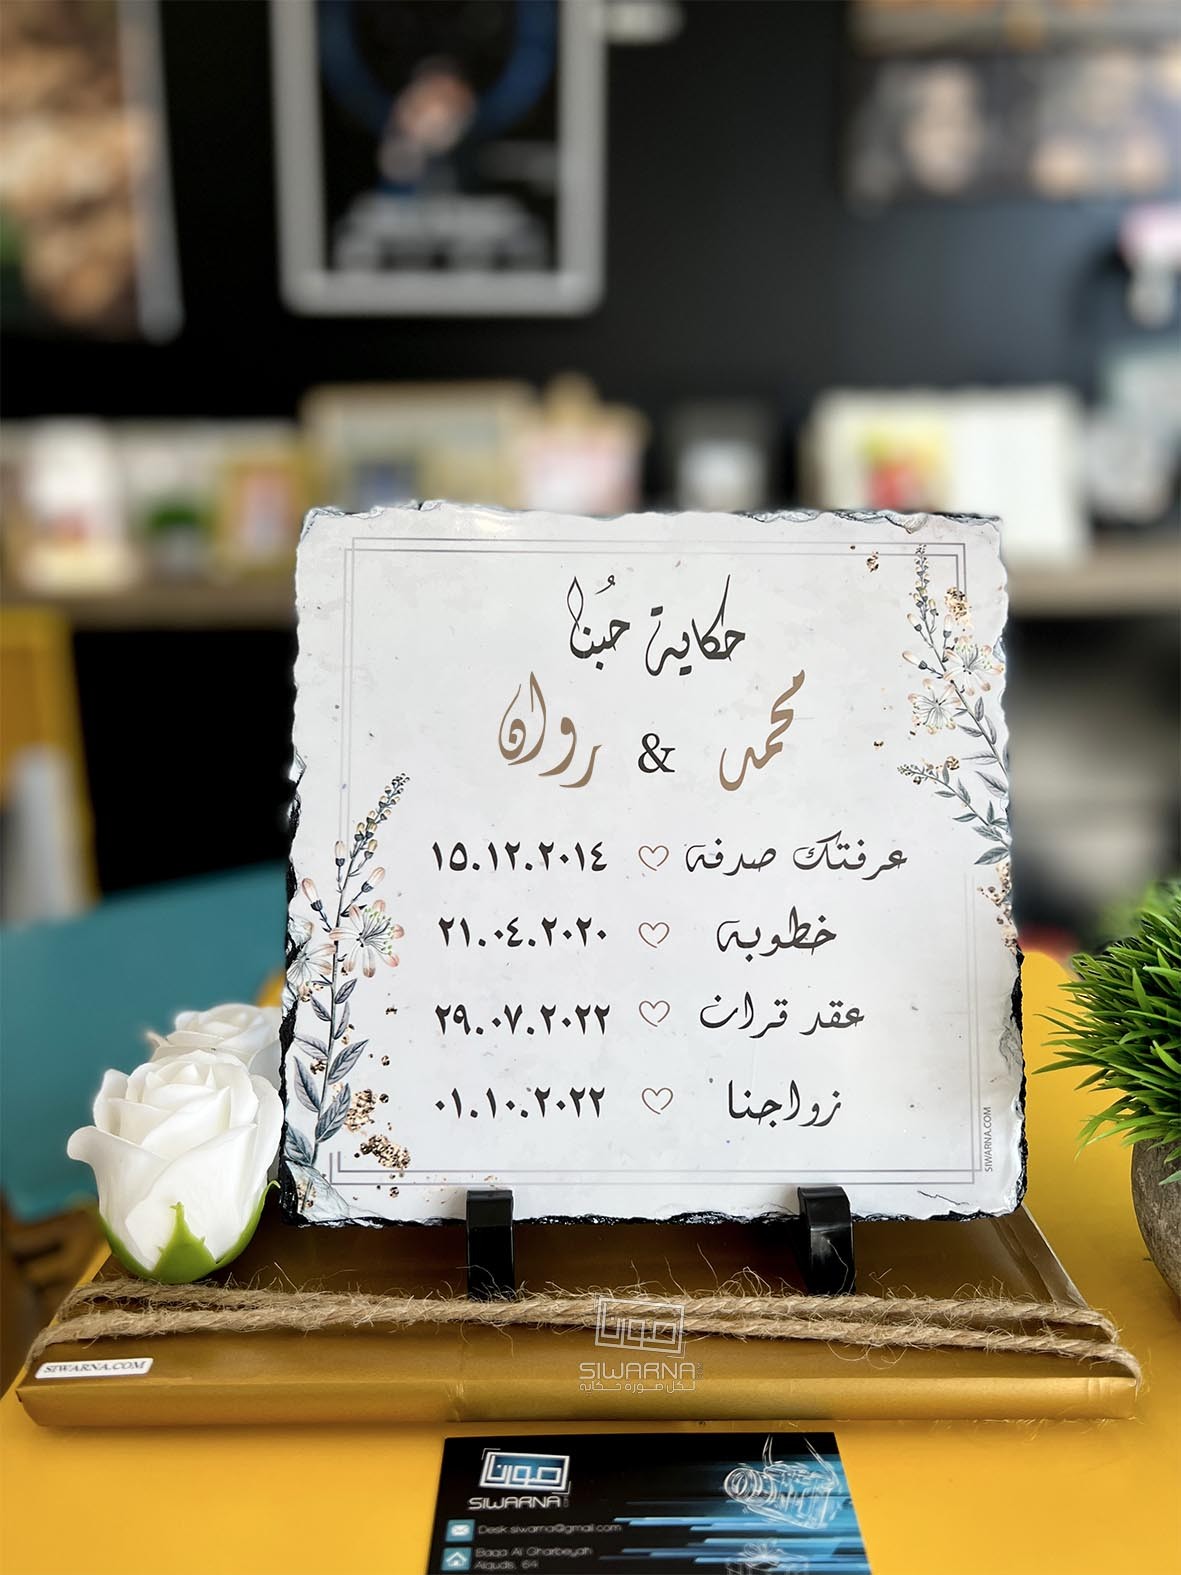 حكاية حُبنا
محمد & روان
عرفتك صدفة ♡ ١٥.١٢.٢٠١٤
خطوبة ♡ ٢١.٠٤.٢٠٢٠
عقد قران ♡ ٢٩.٠٧.٢٠٢٢
زواجنا ♡ ٠١.١٠.٢٠٢٢
SIWARNA.COM
SIWARNA.COM
صورنا
SIWARNA
لكل صوره حكايه
صورنا
SIWARNA
Desk.siwarna@gmail.com
Baqa Al Gharbeyah
Alquds, 64